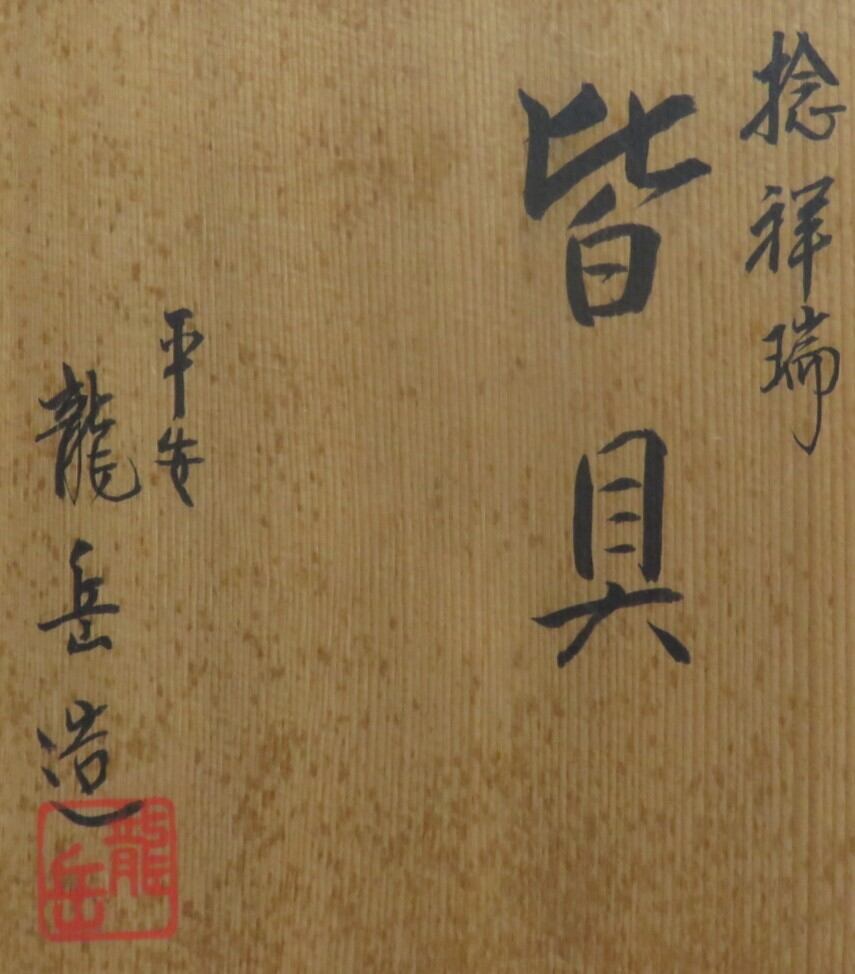 捻祥瑞
皆具
平安
龍岳造
龍岳